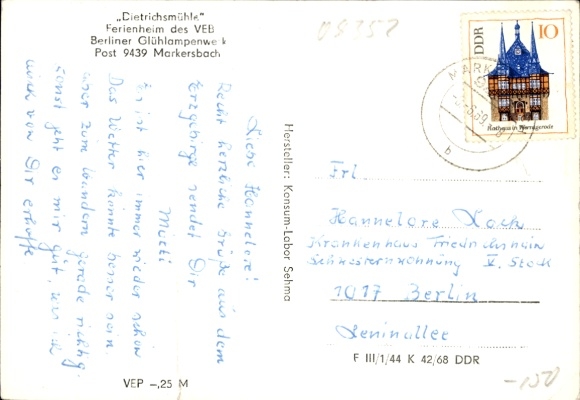 „Dietrichsmühle"
Ferienheim des VEB
Berliner Glühlampenwerk
Post 9439 Markersbach
Liebe Hannelore!
Recht herzliche Grüße aus dem
Erzgebirge sendet Dir
Mucki
Es ist hier immer wieder schön
Das Wetter könnte besser sein.
aber zum wandern gerade richtig.
sonst geht es mir gut, was ich
auch von Dir erhoffe
Hersteller: Konsum-Labor Sehma
VEP -,25 M
DDR
10
Rathaus in Wernigerode
MARK
b
Frl
Hannelore Koch
Krankenhaus Friedrichshain
Schwesternwohnung V. Stock
1017 Berlin
Leninallee
F III/1/44 K 42/68 DDR
-150